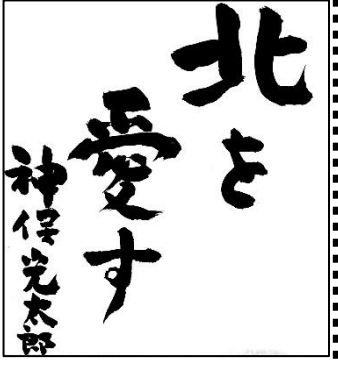 北を
愛す
神保光太郎